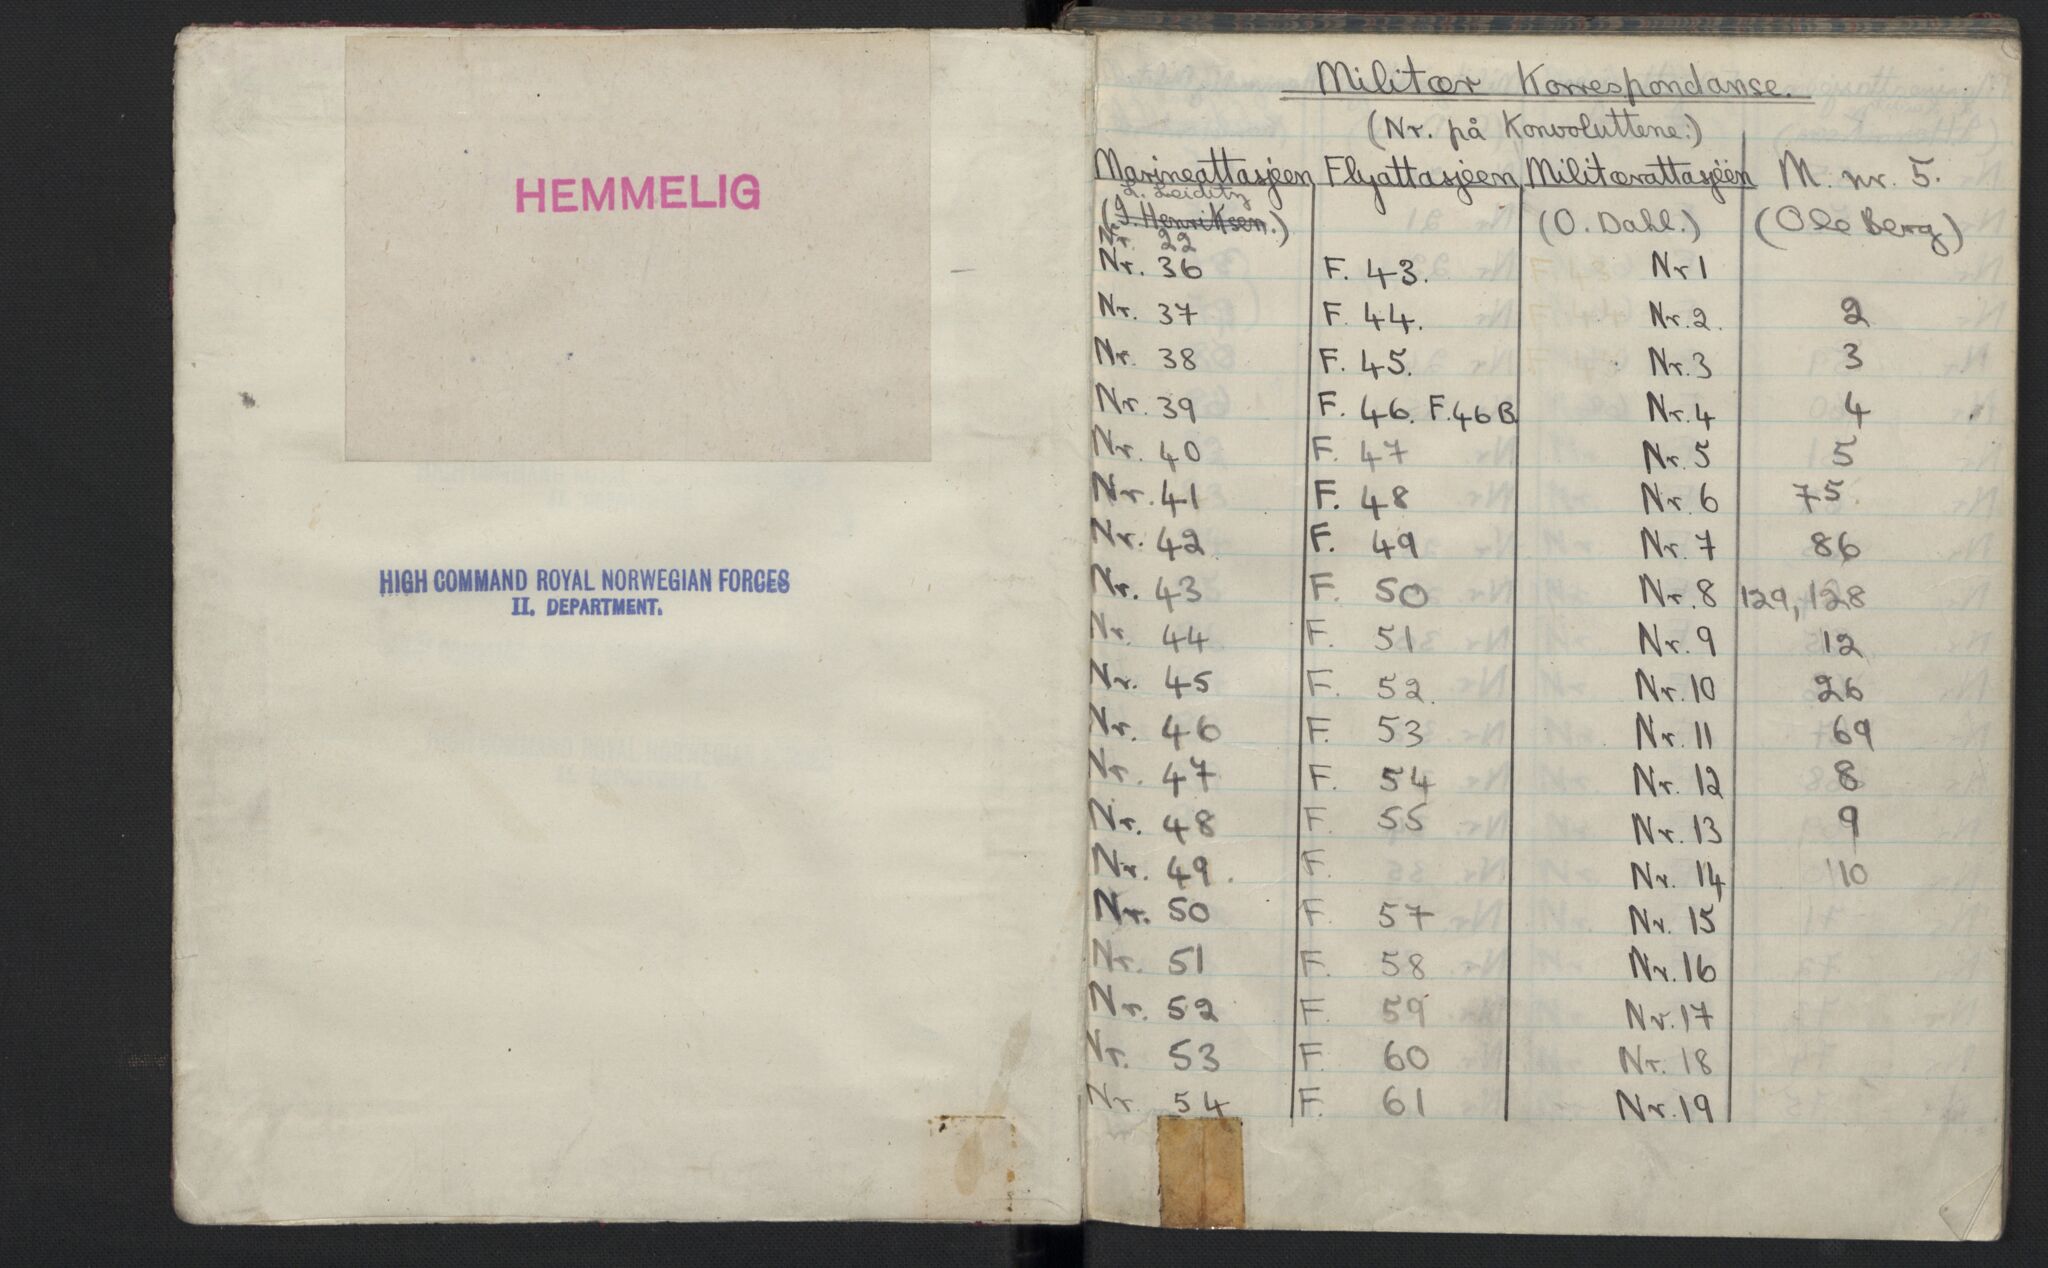 HEMMELIG
HIGH COMMAND ROYAL NORWEGIAN FORCES
II. DEPARTMENT.
Militær Korrespondanse.
(Nr. på Konvoluttene:)
Marineattasjeen Flyattasjeen Militærattasjéen M. nr. 5.
(J. Henriksen.) (O. Dahl.) (Ole Berg)
Nr. 22
Nr. 36 F. 43. Nr 1
Nr. 37 F. 44. Nr. 2. 2
Nr. 38 F. 45. Nr. 3 3
Nr. 39 F. 46. F.46B Nr. 4 4
Nr. 40 F. 47 Nr. 5 5
Nr. 41 F. 48 Nr. 6 75.
Nr. 42 F. 49 Nr. 7 86
Nr. 43 F. 50 Nr. 8 129, 128
Nr. 44 F. 51 Nr. 9 12
Nr. 45 F. 52. Nr. 10 26
Nr. 46 F. 53 Nr. 11 69
Nr. 47 F. 54 Nr. 12 8
Nr. 48 F. 55 Nr. 13 9
Nr. 49. F. Nr. 14 10
Nr. 50 F. 57 Nr. 15
Nr. 51 F. 58 Nr. 16
Nr. 52 F. 59 Nr. 17
Nr. 53 F. 60 Nr. 18
Nr. 54 F. 61 Nr. 19